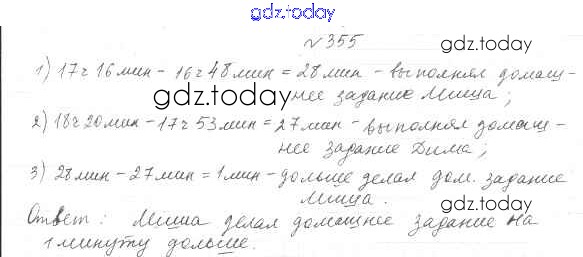 gdz.today
№ 355
gdz.today
1) 17ч 16 мин - 16ч 48 мин = 28 мин - выполнял домаш-
gdz.today
нее задание Миша;
2) 18ч 20 мин - 17ч 53 мин = 27 мин - выполнял домаш-
gdz.today
нее задание Дима;
3) 28 мин - 27 мин = 1 мин - дольше делал дом. задание
Миша.
gdz.today
Ответ: Миша делал домашнее задание на
1 минуту дольше.